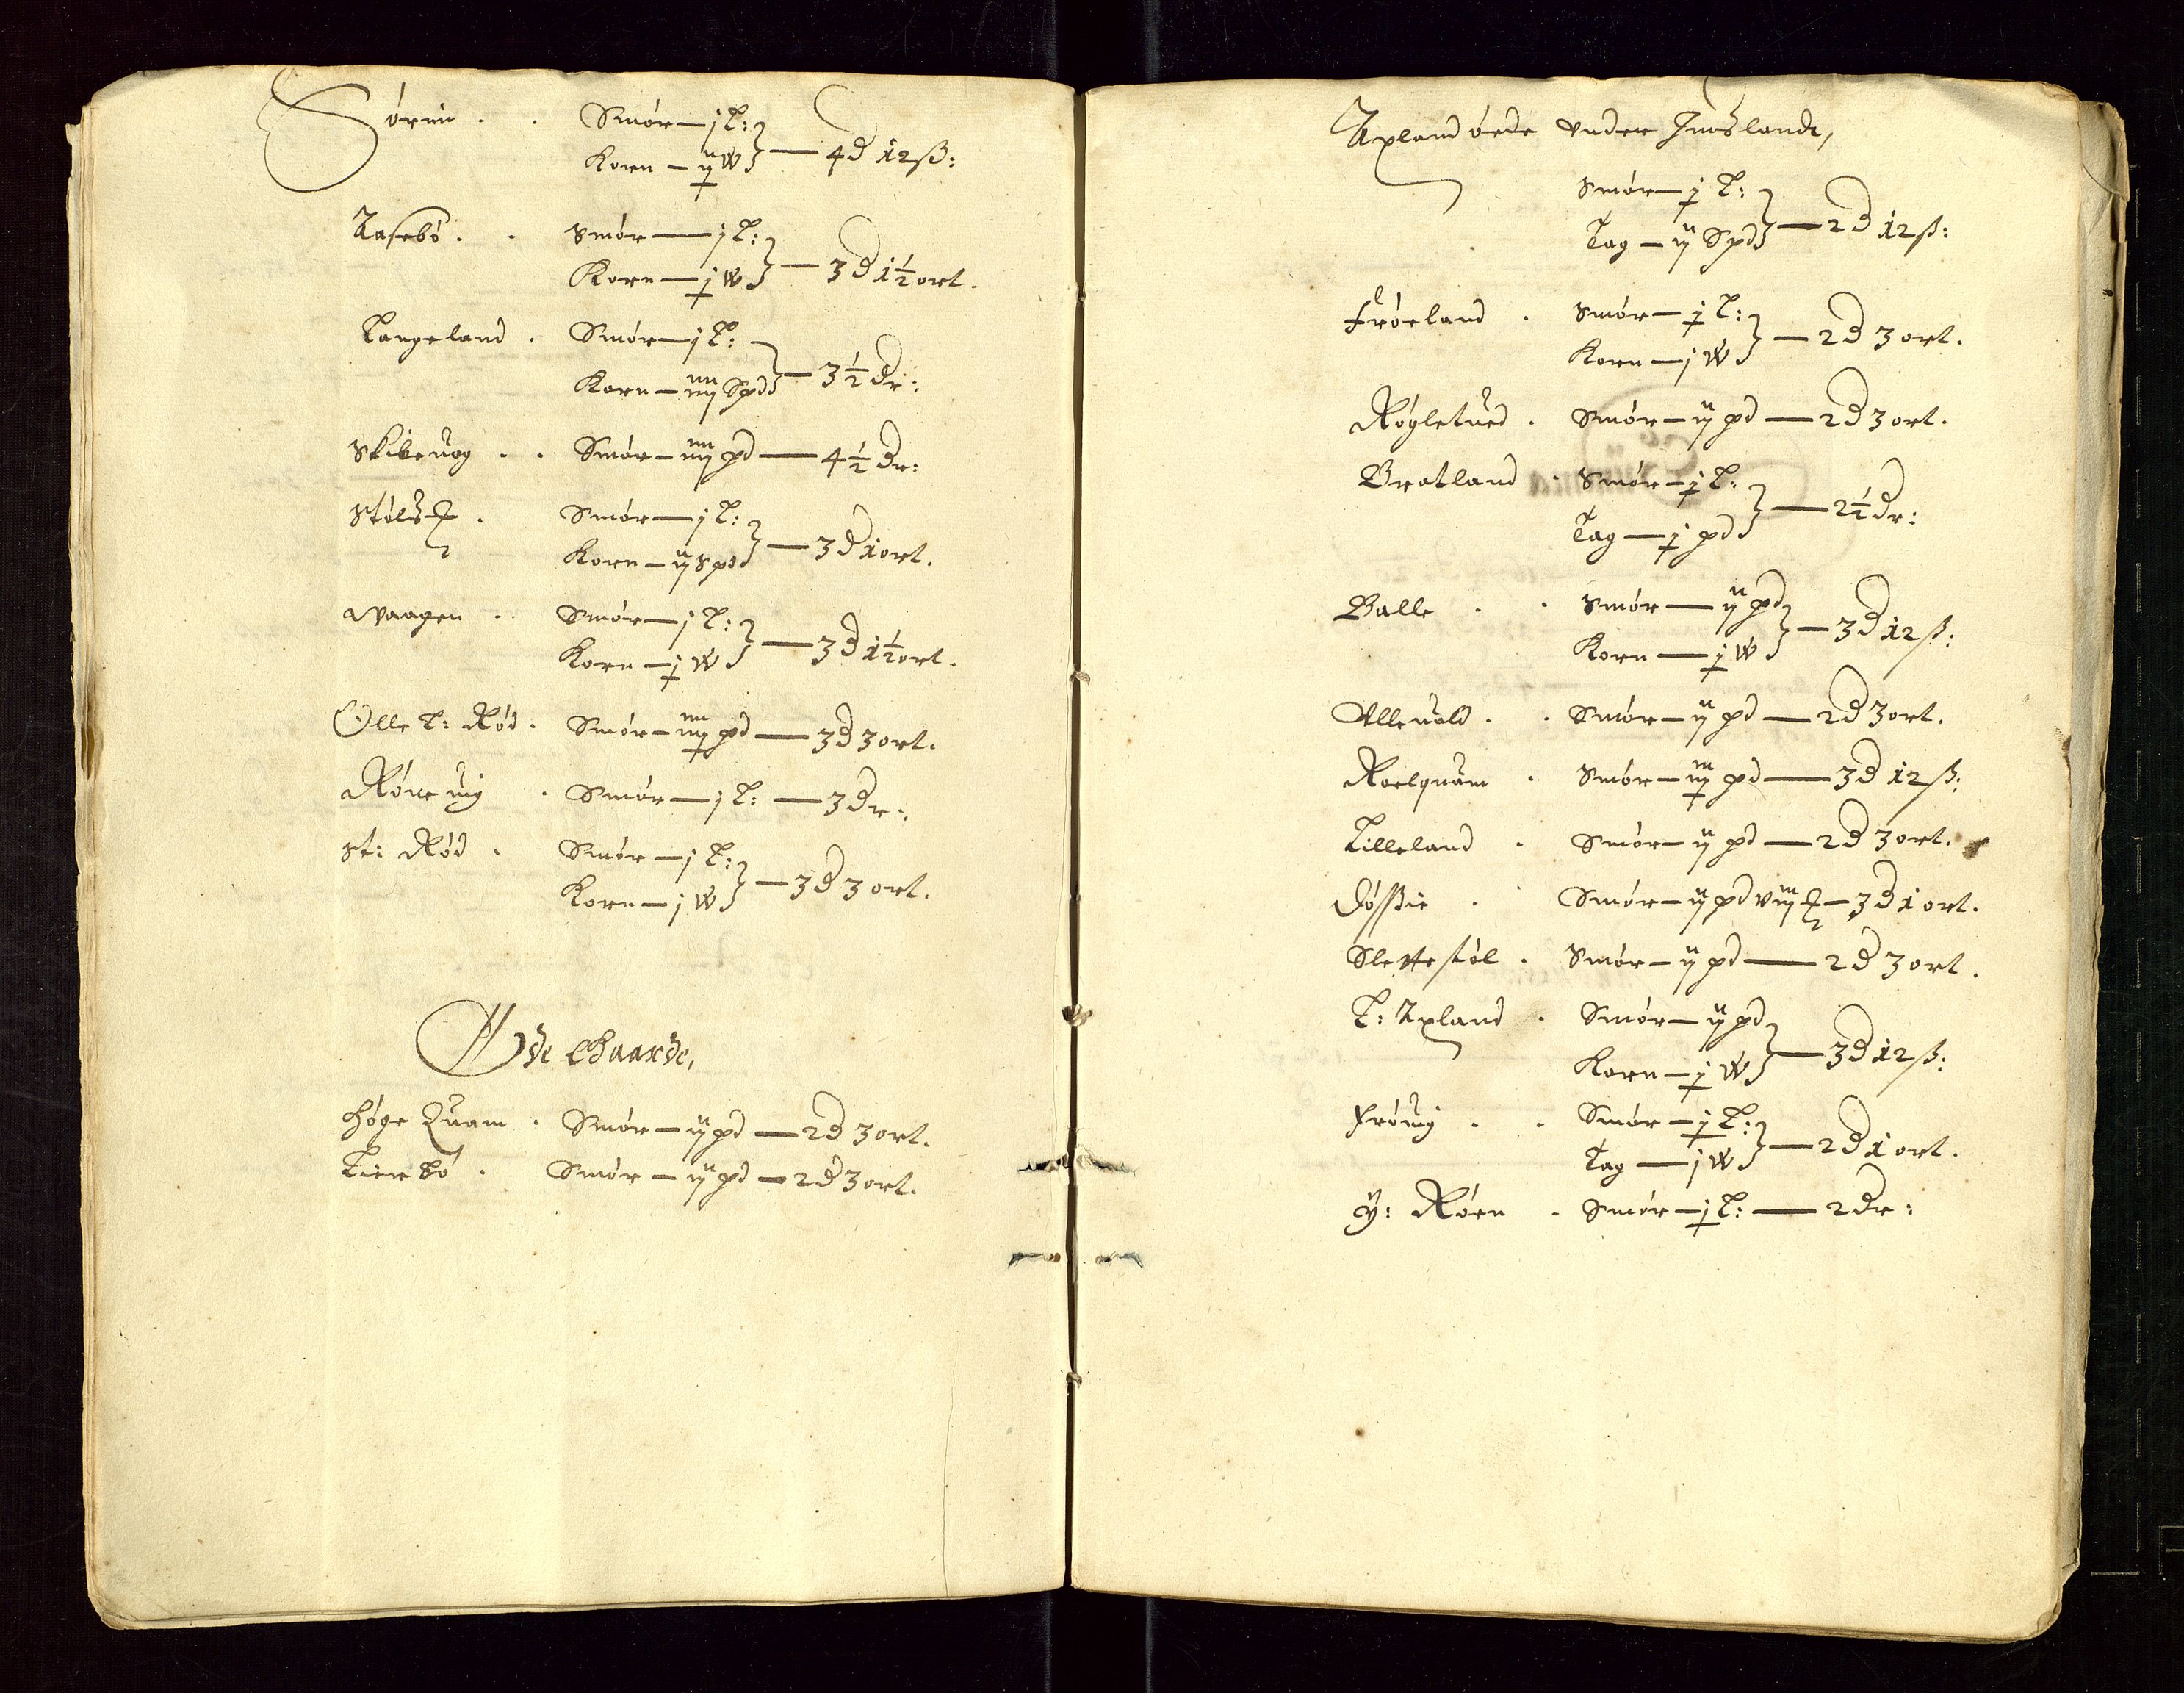 Sørim . . Smør — j L:
Korn — ij W — 4 d 12 ß:
Aasebø . . Smør — j L:
Korn — j W — 3 d 1½ ort.
Langeland . Smør — j L:
Korn — iiij Spd — 3½ dr:
Skibeuog . . Smør — iiij pd — 4½ dr:
Støls . Smør — j L:
Korn — ij Spd — 3 d 1 ort.
Waagen . . Smør — j L:
Korn — j W — 3 d 1½ ort.
Olle L: Rød . Smør — iiij pd — 3 d 3 ort.
Røneuig . Smør — j L: — 3 dr:
St: Rød . Smør — j L:
Korn — j W — 3 d 3 ort.
Øde Gaarde,
Høge Quam . Smør — ij pd — 2 d 3 ort.
Lierbø . Smør — ij pd — 2 d 3 ort.
Axland øede vnder
Smør — j L:
Tag — ij Spd — 2 d 12 ß:
Frøeland . Smør — j L:
Korn — j W — 2 d 3 ort.
Røgletued . Smør — ij pd — 2 d 3 ort.
Bratland . Smør — j L:
Tag — j pd — 2½ dr:
Balle . . Smør — ij pd
Korn — j W — 3 d 12 ß:
Vlleuold . . Smør — ij pd — 2 d 3 ort.
Roelquam . Smør — iij pd — 3 d 12 ß:
Lilleland . Smør — ij pd — 2 d 3 ort.
Døssie . Smør — ij pd viij — 3 d 1 ort.
Slettestøl . Smør — ij pd — 2 d 3 ort.
L: Axland . Smør — ij pd
Korn — j W — 3 d 12 ß:
Frøuig . . Smør — j L:
Tag — j W — 2 d 1 ort.
Y: Røen . Smør — j L: — 2 dr: